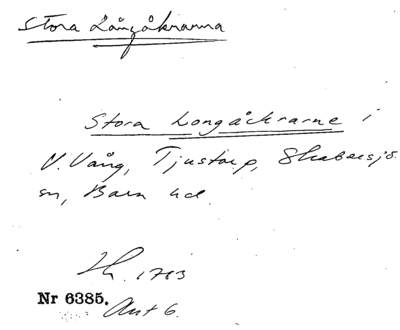 Stora Långåkrarna
Stora Longåckrarne i
V. Vång, Tjustorp, Skabersjö
sn, Bara hd
Lh. 1703
Nr 6385. Akt 6.